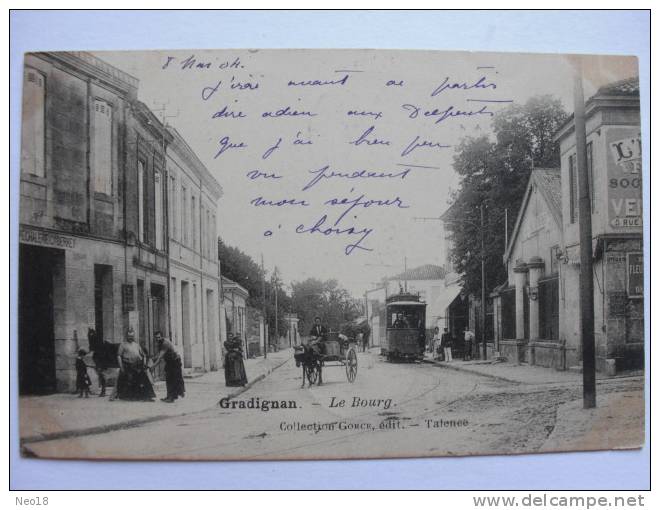 8 Mai 04.
j'irai avant de partir
dire adieu aux Delpeut
que j'ai bien peu
vu pendant
mon séjour
à Choisy
MARÉCHALERIE CYBERNEY
L'
SOC
VE
5 RUE
FLEU
Gradignan. - Le Bourg.
Collection GORCE, édit. - Talence
Neo18
http://www.delcampe.net